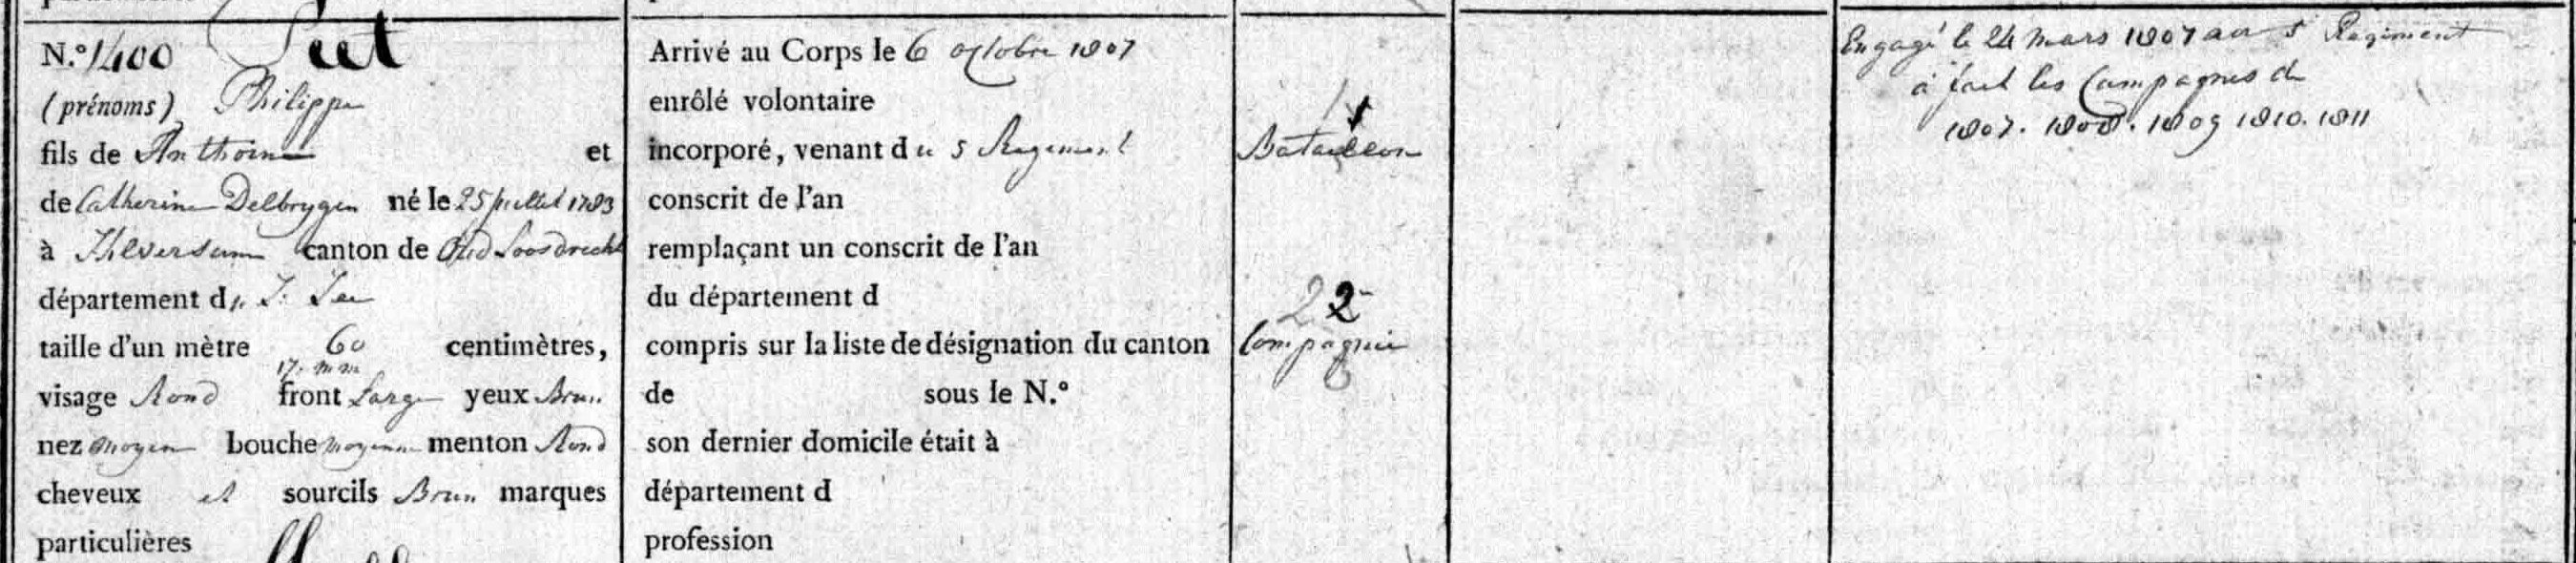 N.º 1400 Peet
(prénoms) Philippe
fils de Anthoine et
de Catherine Delbrygen né le 25 juillet 1783
à Hilversum canton de Oud Loosdrecht
département d
taille d'un mètre 60 centimètres,
17. m m
visage Rond front Large yeux Brun
nez moyen bouche moyenne menton Rond
cheveux et sourcils Brun marques
particulières
Arrivé au Corps le 6 octobre 1807
enrôlé volontaire
incorporé, venant du 5 Regiment
conscrit de l'an
remplaçant un conscrit de l'an
du département d
compris sur la liste de désignation du canton
de sous le N.º
son dernier domicile était à
département d
profession
1
Bataillon
2 2
Compagnie
Engagé le 24 mars 1807 au 5 Regiment
a fait les Campagnes de
1807. 1808. 1809 1810. 1811